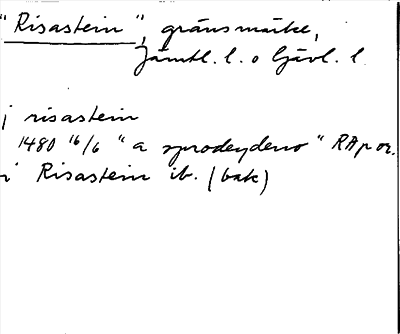 "Risastein", gränsmärke,
Jämtl. l. o Gävl. l.
j risastein
1480 16/6 "a sprodeydeno" RA p or.
i Risastein ib. (bak)